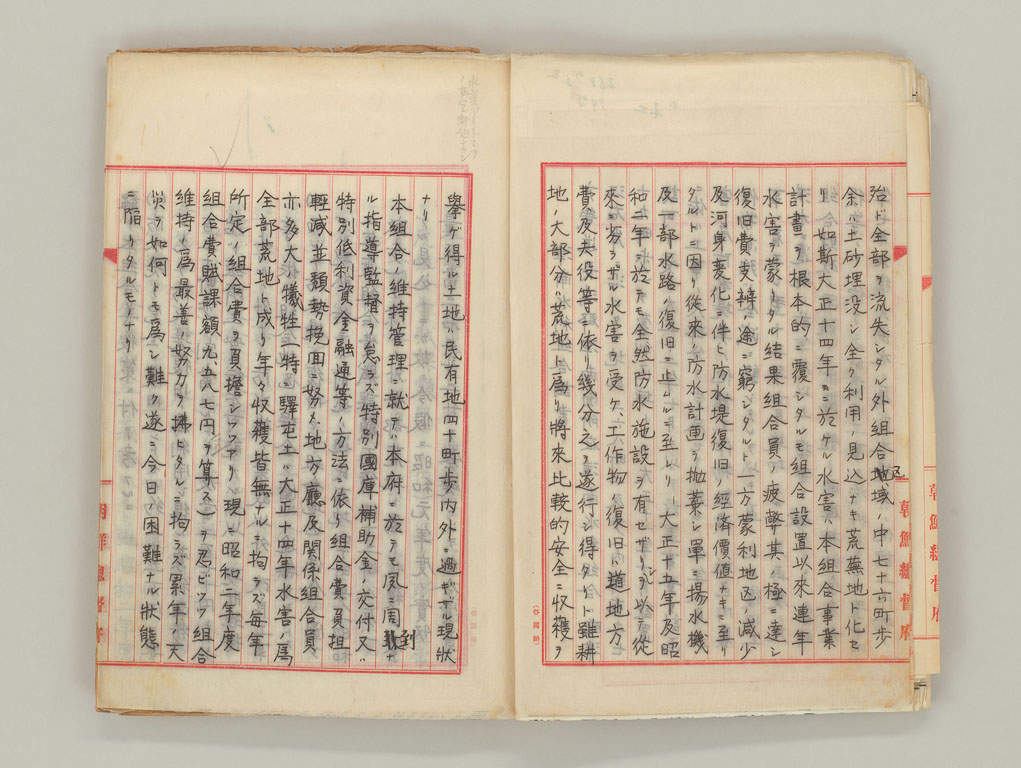 殆ド全部ヲ流失シタル外組合地域区ノ中七十六町歩
余ハ土砂埋没シ全ク利用ノ見込ナキ荒蕪地ト化セ
リ如斯大正十四年ニ於ケル水害ハ本組合事業
計畫ヲ根本的ニ覆シタルモ組合設置以来連年
水害ヲ蒙リタル結果組合員ノ疲弊其ノ極ニ達シ
復旧費支辨ノ途ニ窮シタルト一方蒙利地区ノ減少
及河身変化ニ伴ヒ防水堤復旧ノ経済價値ナキニ至リ
タルトニ因リ從来ノ防水計画ヲ抛棄シ單ニ揚水機
及一部水路ノ復旧ニ止ムルニ至レリ大正十五年及昭
和二年ニ於テモ全然防水施設ヲ有セザリシヲ以テ從
来ニ劣ラザル水害ヲ受ケ工作物ノ復旧ハ道地方
費及夫役等ニ依リ幾分之ヲ遂行シ得タリト雖耕
地ノ大部分ハ荒地ト為リ將来比較的安全ニ収穫ヲ
朝鮮總督府
擧ゲ得ル土地ハ民有地四十町歩内外ニ過ギザル現状
ナリ
本組合ノ維持管理ニ就テハ本府ニ於テモ夙ニ周到ナ
ル指導監督ヲ怠ラズ特別國庫補助金ノ交付又ハ
特別低利資金融通等ノ方法ニ依リ組合費負担
輕減並頽勢挽回ニ努メ地方廳及関係組合員
亦多大ノ犠牲(特ニ驛屯土ハ大正十四年水害ノ為
全部荒地ト成リ年々収穫皆無ナルニ拘ラズ毎年
所定ノ組合費ヲ負擔シツツアリ現ニ昭和二年度
組合費賦課額九、五八七円ヲ算ス)ヲ忍ビツツ組合
維持ノ為最善ノ努力ヲ拂ヒタルニ拘ラズ累年ノ天
災ヲ如何トモ為シ難ク遂ニ今日ノ困難ナル状態
ニ陥リタルモノナリ
朝鮮總督府